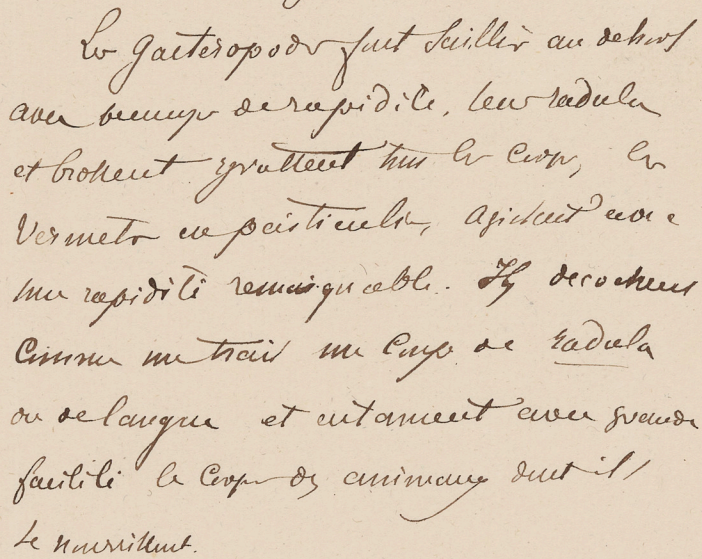 Les Gastéropodes font saillir au dehors
avec beaucoup de rapidité, leur radula
et brottent grattent tous les corps, les
Vermets en particulier, agissent avec
une rapidité remarquable. Ils decochent
comme un trait un coup de radula
ou de langue et entament avec grande
facilité le corps des animaux dont ils
se nourrissent.